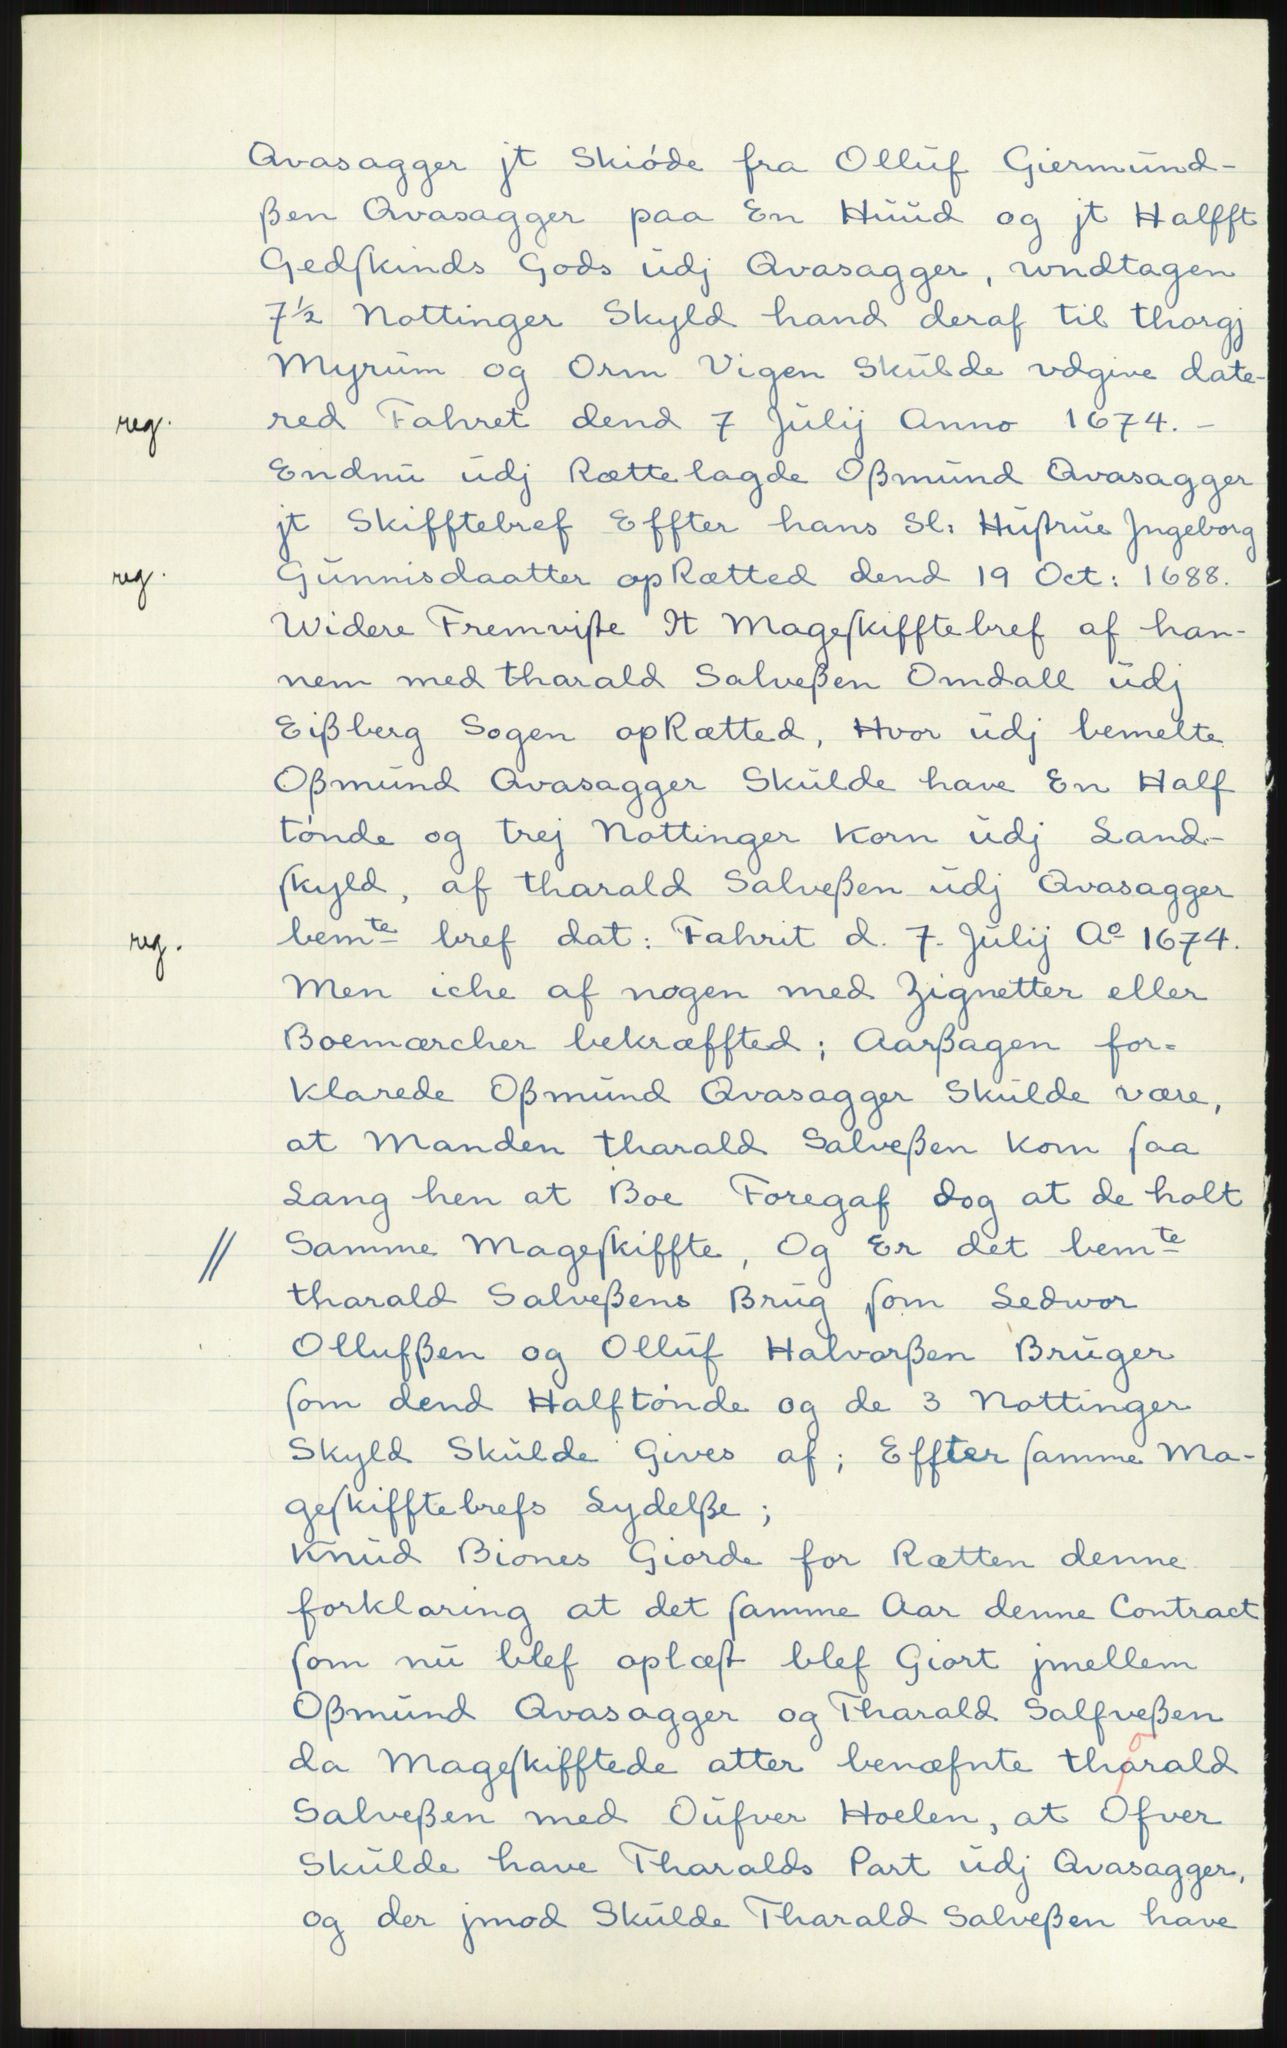 Qvasagger jt Skióde fra Ollúf Giermúnd-
ßen Qvasagger paa En Húúd og jt Halfft
Gedſkinds Gods údj Qvasagger, undtagen
7½ Nottinger Skyld hand deraf til thorgj
Myrúm og Orm Vigen Skúlde vdgive date-
reg. red Fahret dend 7 Júlij Anno 1674. -
Endnú údj Rættelagde Oßmúnd Qvasagger
jt Skifftebref Effter hans Sl: Húſtrúe Jngeborg
reg. Gúnnisdaatter opRætted dend 19 Oct: 1688.
Widere Fremviſte It Mageſkifftebref af han-
nem med tharald Salveßen Omdall údj
Eißberg Sogen opRætted, Hvor údj bemelte
Oßmúnd Qvasagger Skúlde have En Half
tónde og trej Nottinger Korn údj Land-
ſkyld, af tharald Salveßen údj Qvasagger
reg. bemte bref dat: Fahrit d. 7. Júlij Ao 1674.
Men iche af nogen med Zignetter eller
Boemærcher bekræffted; Aarßagen for=
klarede Oßmúnd Qvasagger Skúlde være,
at Manden tharald Salveßen kom ſaa
Lang hen at Boe Foregaf dog at de holt
// Samme Mageſkiffte, Og Er det bemte
tharald Salveßens Brúg ſom Ledvor
Ollufßen og Ollúf Halvorßen Brúger
ſom dend Halftónde og de 3 Nottinger
Skyld Skúlde Gives af; Effter ſamme Ma-
geſkifftebrefs Lydelße;
Knúd Biones Giorde for Rætten denne
forklaring at det ſamme Aar denne Contract
ſom nú blef oplæſt blef Giort jmellem
Oßmúnd Qvasagger og Tharald Salfveßen
da Mageſkifftede atter benæfnte tharald
Salveßen med Oúfver Hoelen, at Ofver
Skúlde have Tharalds Part údj Qvasagger,
og der jmod Skúlde Tharald Salveßen have